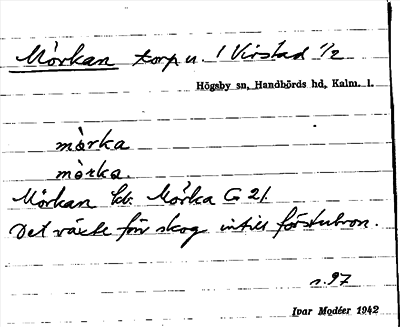 Mörkan torp u. / Virstad 1/2
Högsby sn, Handbörds hd, Kalm. l.
mòrka
mòrka.
Mörkan kr. Mörka G 21.
Det växte för skog intill förstubron.
s. 97
Ivar Modéer 1942